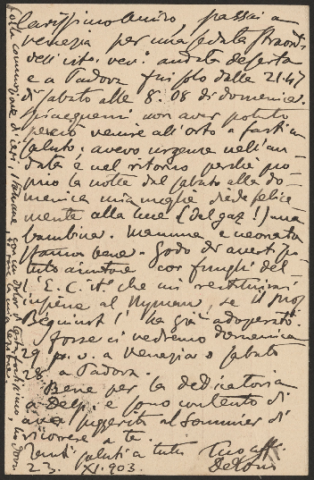 Carissimo Amico, passai a
Venezia per una seduta straord.
dell'ist. ven. andata deserta
e a Padova fui solo dalle 21.47
di sabato alle 8.08 di domenica.
Spiacquemi non aver potuto
perciò venire all'orto a farti un
saluto; avevo urgenza nell'an-
data e nel ritorno perchè pro-
prio la notte dal sabato alla do-
menica mia moglie diede felice-
mente alla luce (dal gaz!) una
bambina. Mamma e neonata
stanno bene. Godo di averti po-
tuto aiutare coi funghi del-
l'E.C. it. che mi restituirai
insieme al Nyman, se il prof.
Béguinot l'ha già adoperato.
Forse ci vedremo domenica
29 p. v. a Venezia o sabato
28 a Padova.
Bene per la dedicatoria
a Delpi e sono contento di
aver suggerito al Sommier di
ricorrere a te.
Tanti saluti a tutti Tuo aff.
23. XI. 903. DeToni
Colla commissione di